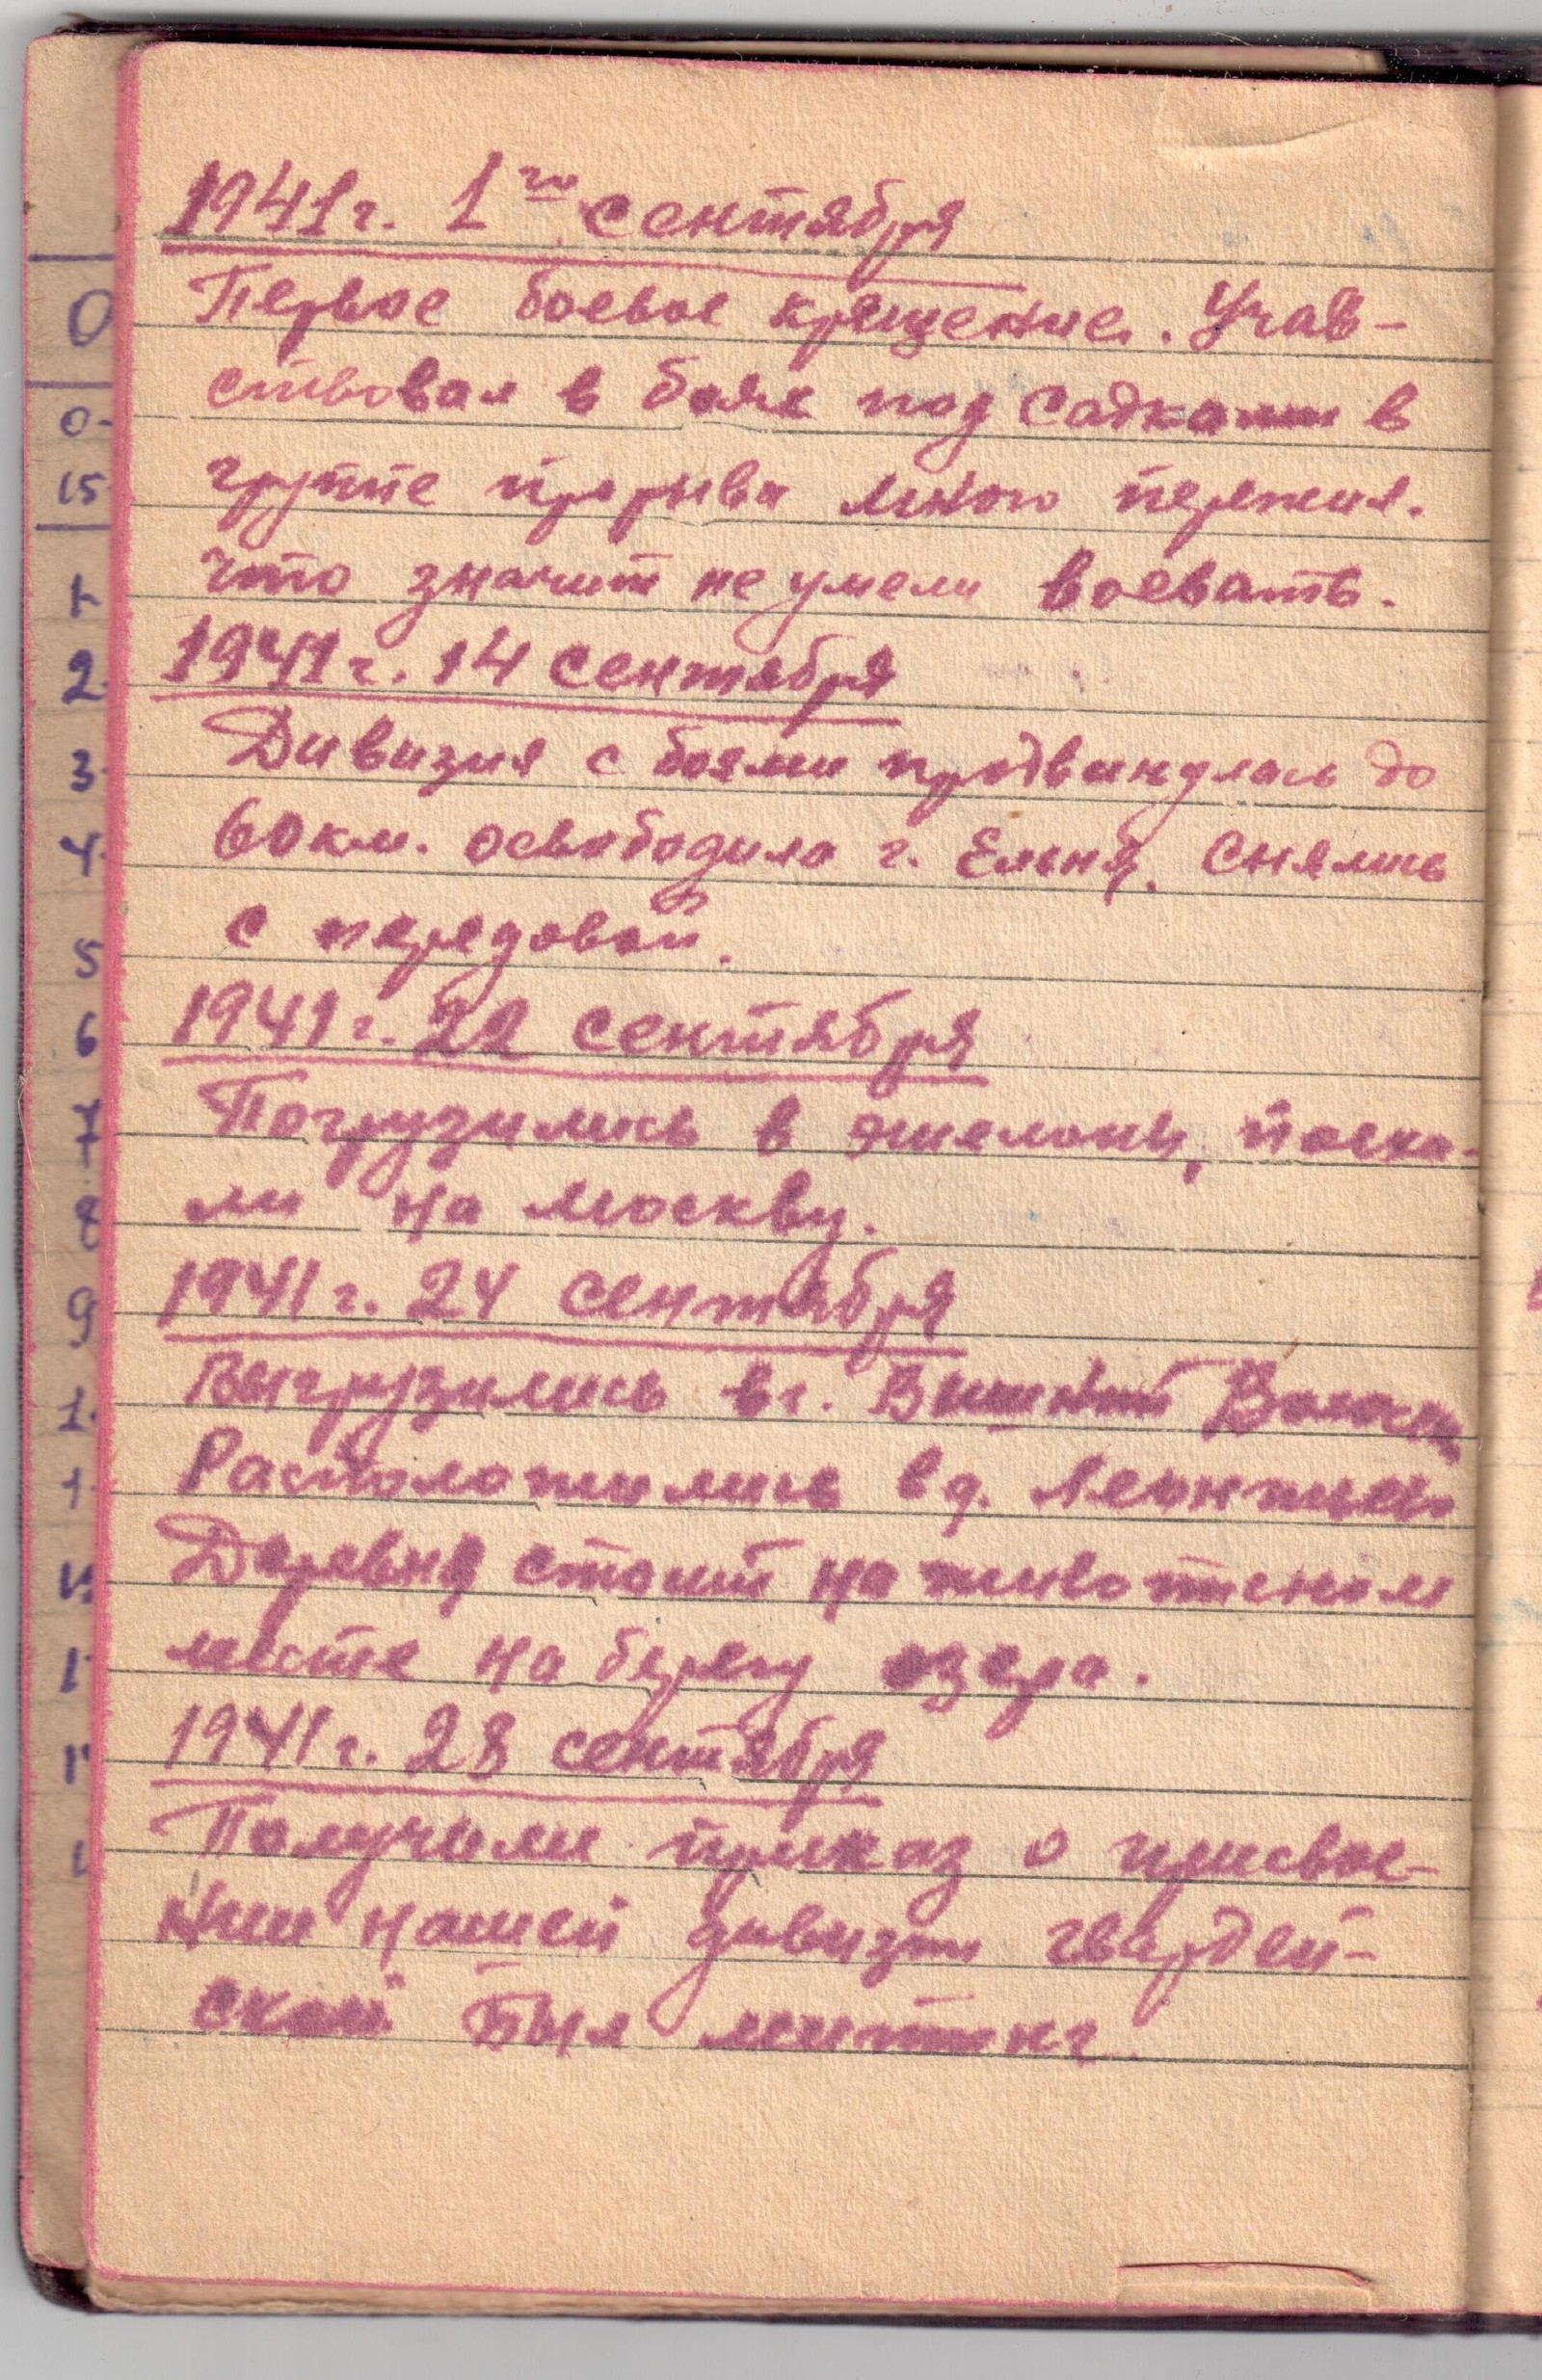 1941г. 1го сентября
Первое боевое крещение. Учав-
ствовал в боях под Садками в
группе прорыва много пережил.
что значит не умели воевать.
1941г. 14 сентября
Дивизия с боями продвинулась до
60км. освободила г. Ельня. Снялись
с передовой.
1941г. 22 сентября
Погрузились в эшелоны, поеха-
ли на Москву.
1941г. 24 сентября
Выгрузились в г. Вышний Волочек
Расположились в д. Леонтьево
Деревня стоит на живописном
месте на берегу озера.
1941г. 28 сентября
Получили приказ о присвое-
нии нашей дивизии гвардей-
ской Был митинг.
0
0-
15
1
2
3
4
5
6
7
8
9